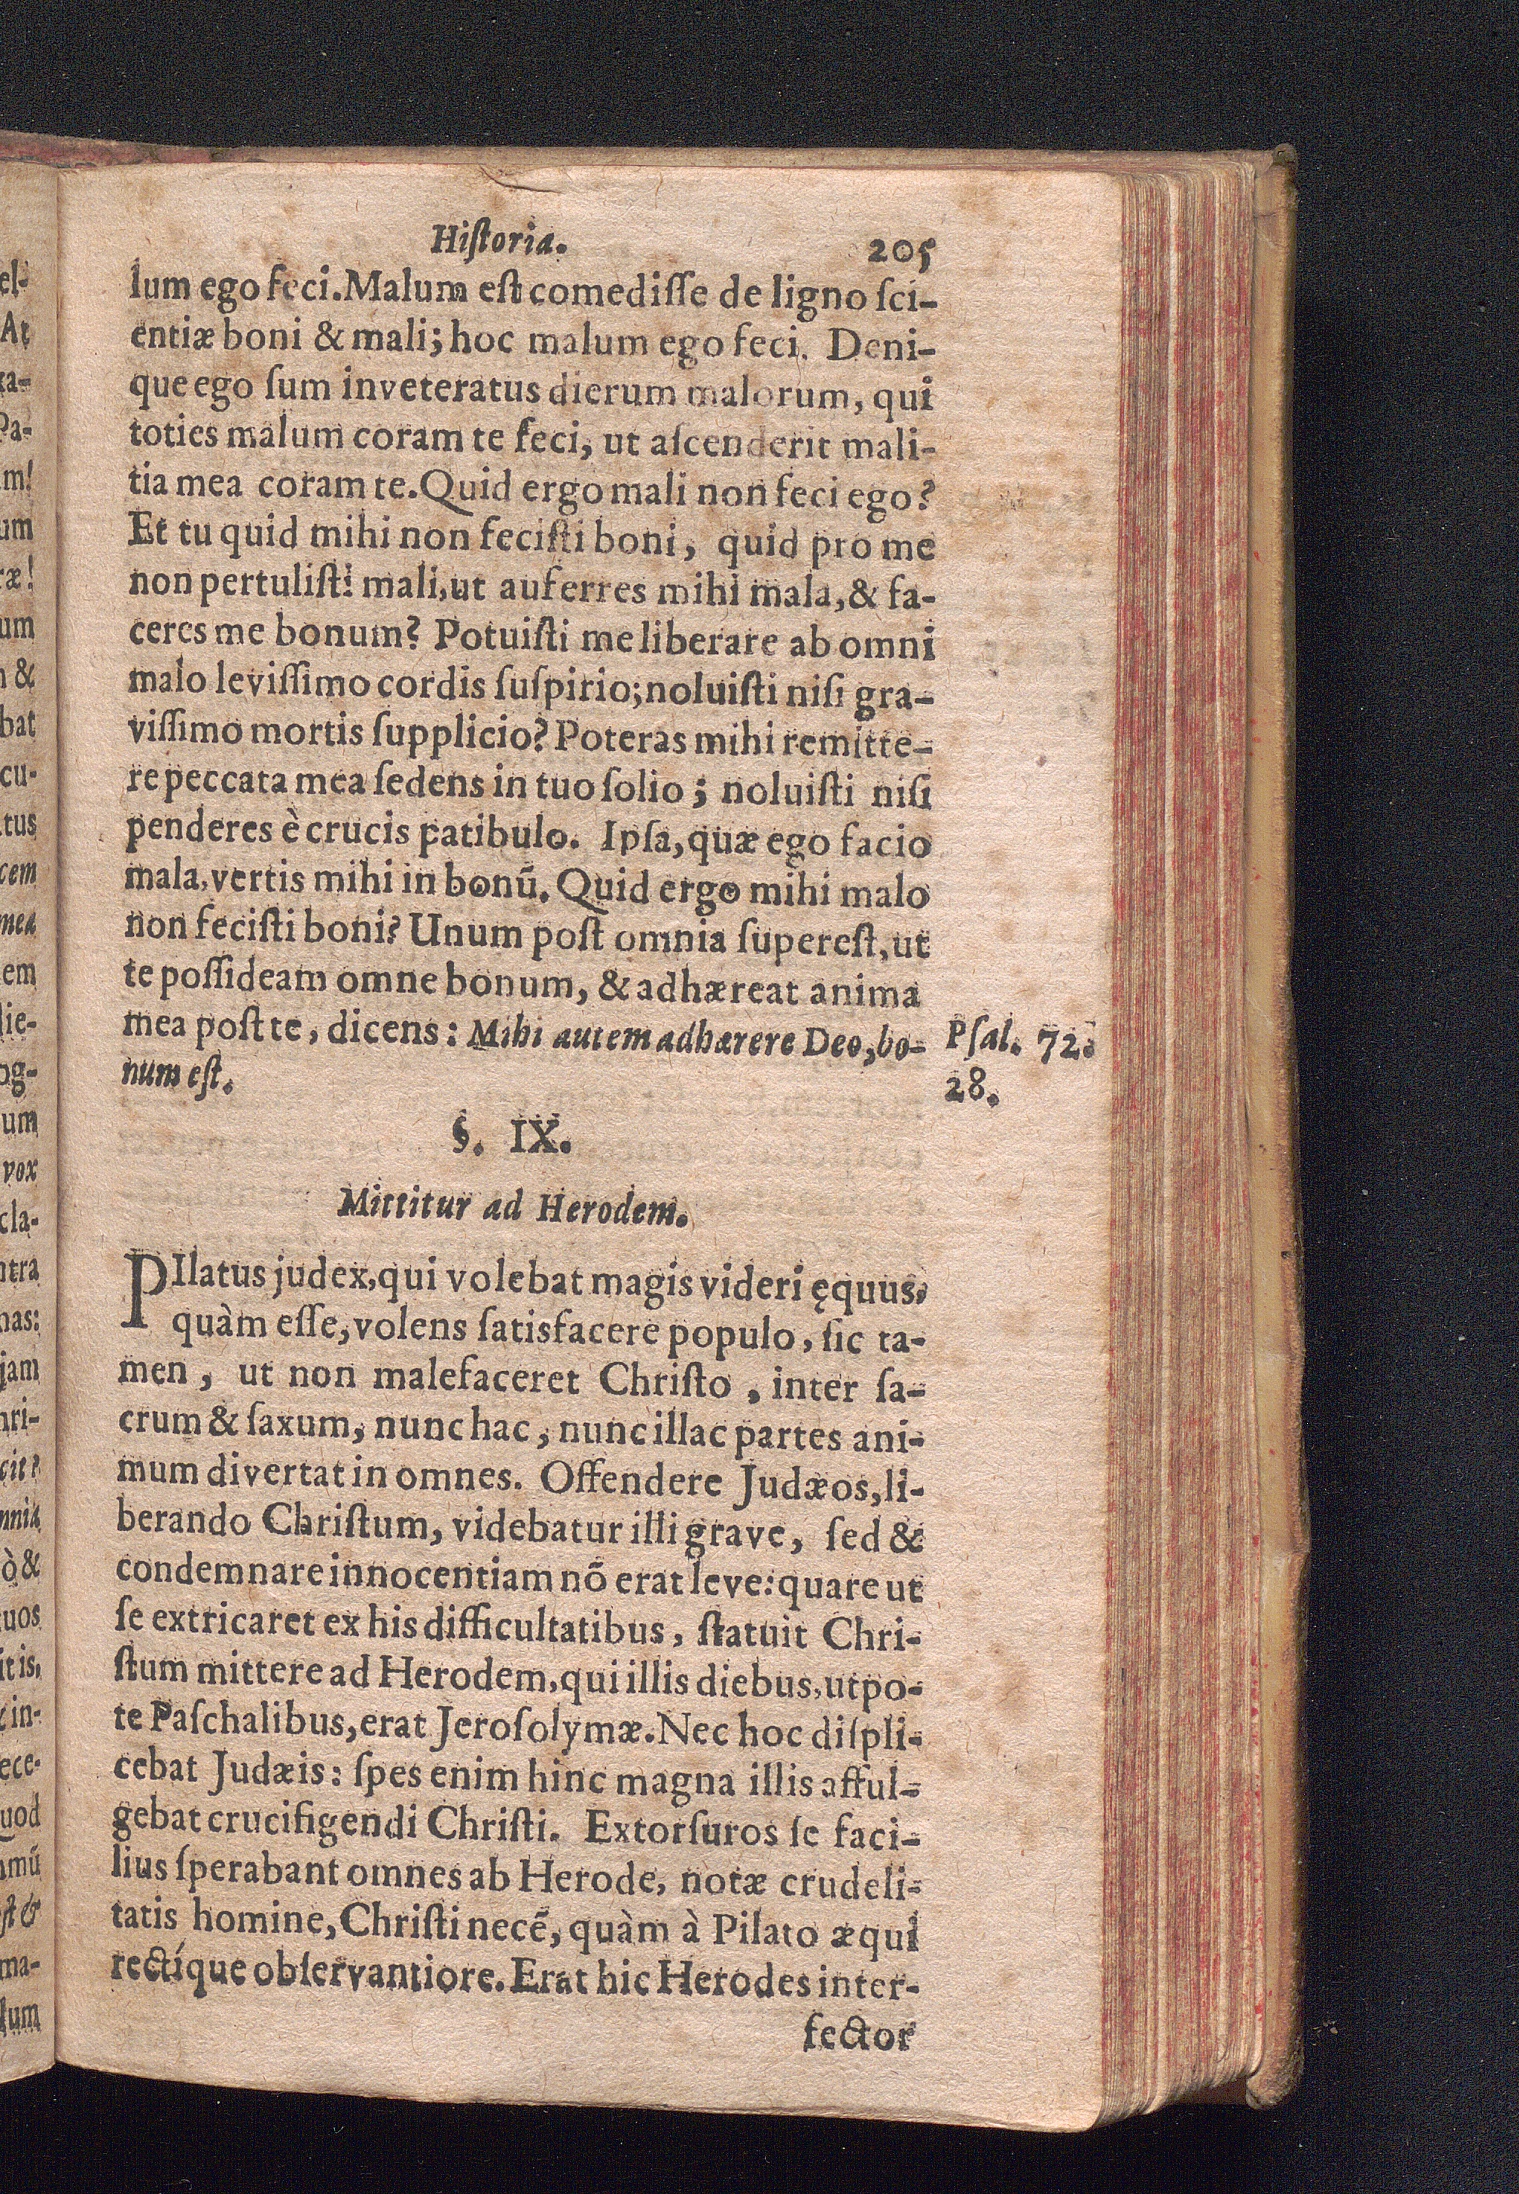 Hiſtoria. 205
lum ego feci. Malum eſt comediſſe de ligno ſci-
entiæ boni & mali; hoc malum ego feci. Deni-
que ego ſum inveteratus dierum malorum, qui
toties malum coram te feci, ut aſcenderit mali-
tia mea coram te. Quid ergo mali non feci ego?
Et tu quid mihi non feciſti boni, quid pro me
non pertuliſti mali, ut auferres mihi mala, & fa-
ceres me bonum? Potuiſti me liberare ab omni
malo leviſſimo cordis ſuſpirio; noluiſti niſi gra-
viſſimo mortis ſupplicio? Poteras mihi remitte-
re peccata mea ſedens in tuo ſolio; noluiſti niſi
penderes è crucis patibulo. Ipſa, quæ ego facio
mala, vertis mihi in bonũ. Quid ergo mihi malo
non feciſti boni? Unum poſt omnia ſupereſt, ut
te poſſideam omne bonum, & adhæreat anima
mea poſt te, dicens: Mihi autem adhærere Deo, bo-
num eſt.
Pſal. 72.
28.
§. IX.
Mittitur ad Herodem.
PIlatus judex, qui volebat magis videri ęquus,
quàm eſſe, volens ſatisfacere populo, ſic ta-
men, ut non malefaceret Chriſto, inter ſa-
crum & ſaxum, nunc hac, nunc illac partes ani-
mum divertat in omnes. Offendere Judæos, li-
berando Chriſtum, videbatur illi grave, ſed &
condemnare innocentiam nõ erat leve: quare ut
ſe extricaret ex his difficultatibus, ſtatuit Chri-
ſtum mittere ad Herodem, qui illis diebus, utpo-
te Paſchalibus, erat Jeroſolymæ. Nec hoc diſpli-
cebat Judæis: ſpes enim hinc magna illis afful-
gebat crucifigendi Chriſti. Extorſuros ſe faci-
lius ſperabant omnes ab Herode, notæ crudeli-
tatis homine, Chriſti necẽ, quàm à Pilato æqui
rectíque obſervantiore. Erat hic Herodes inter-
fector